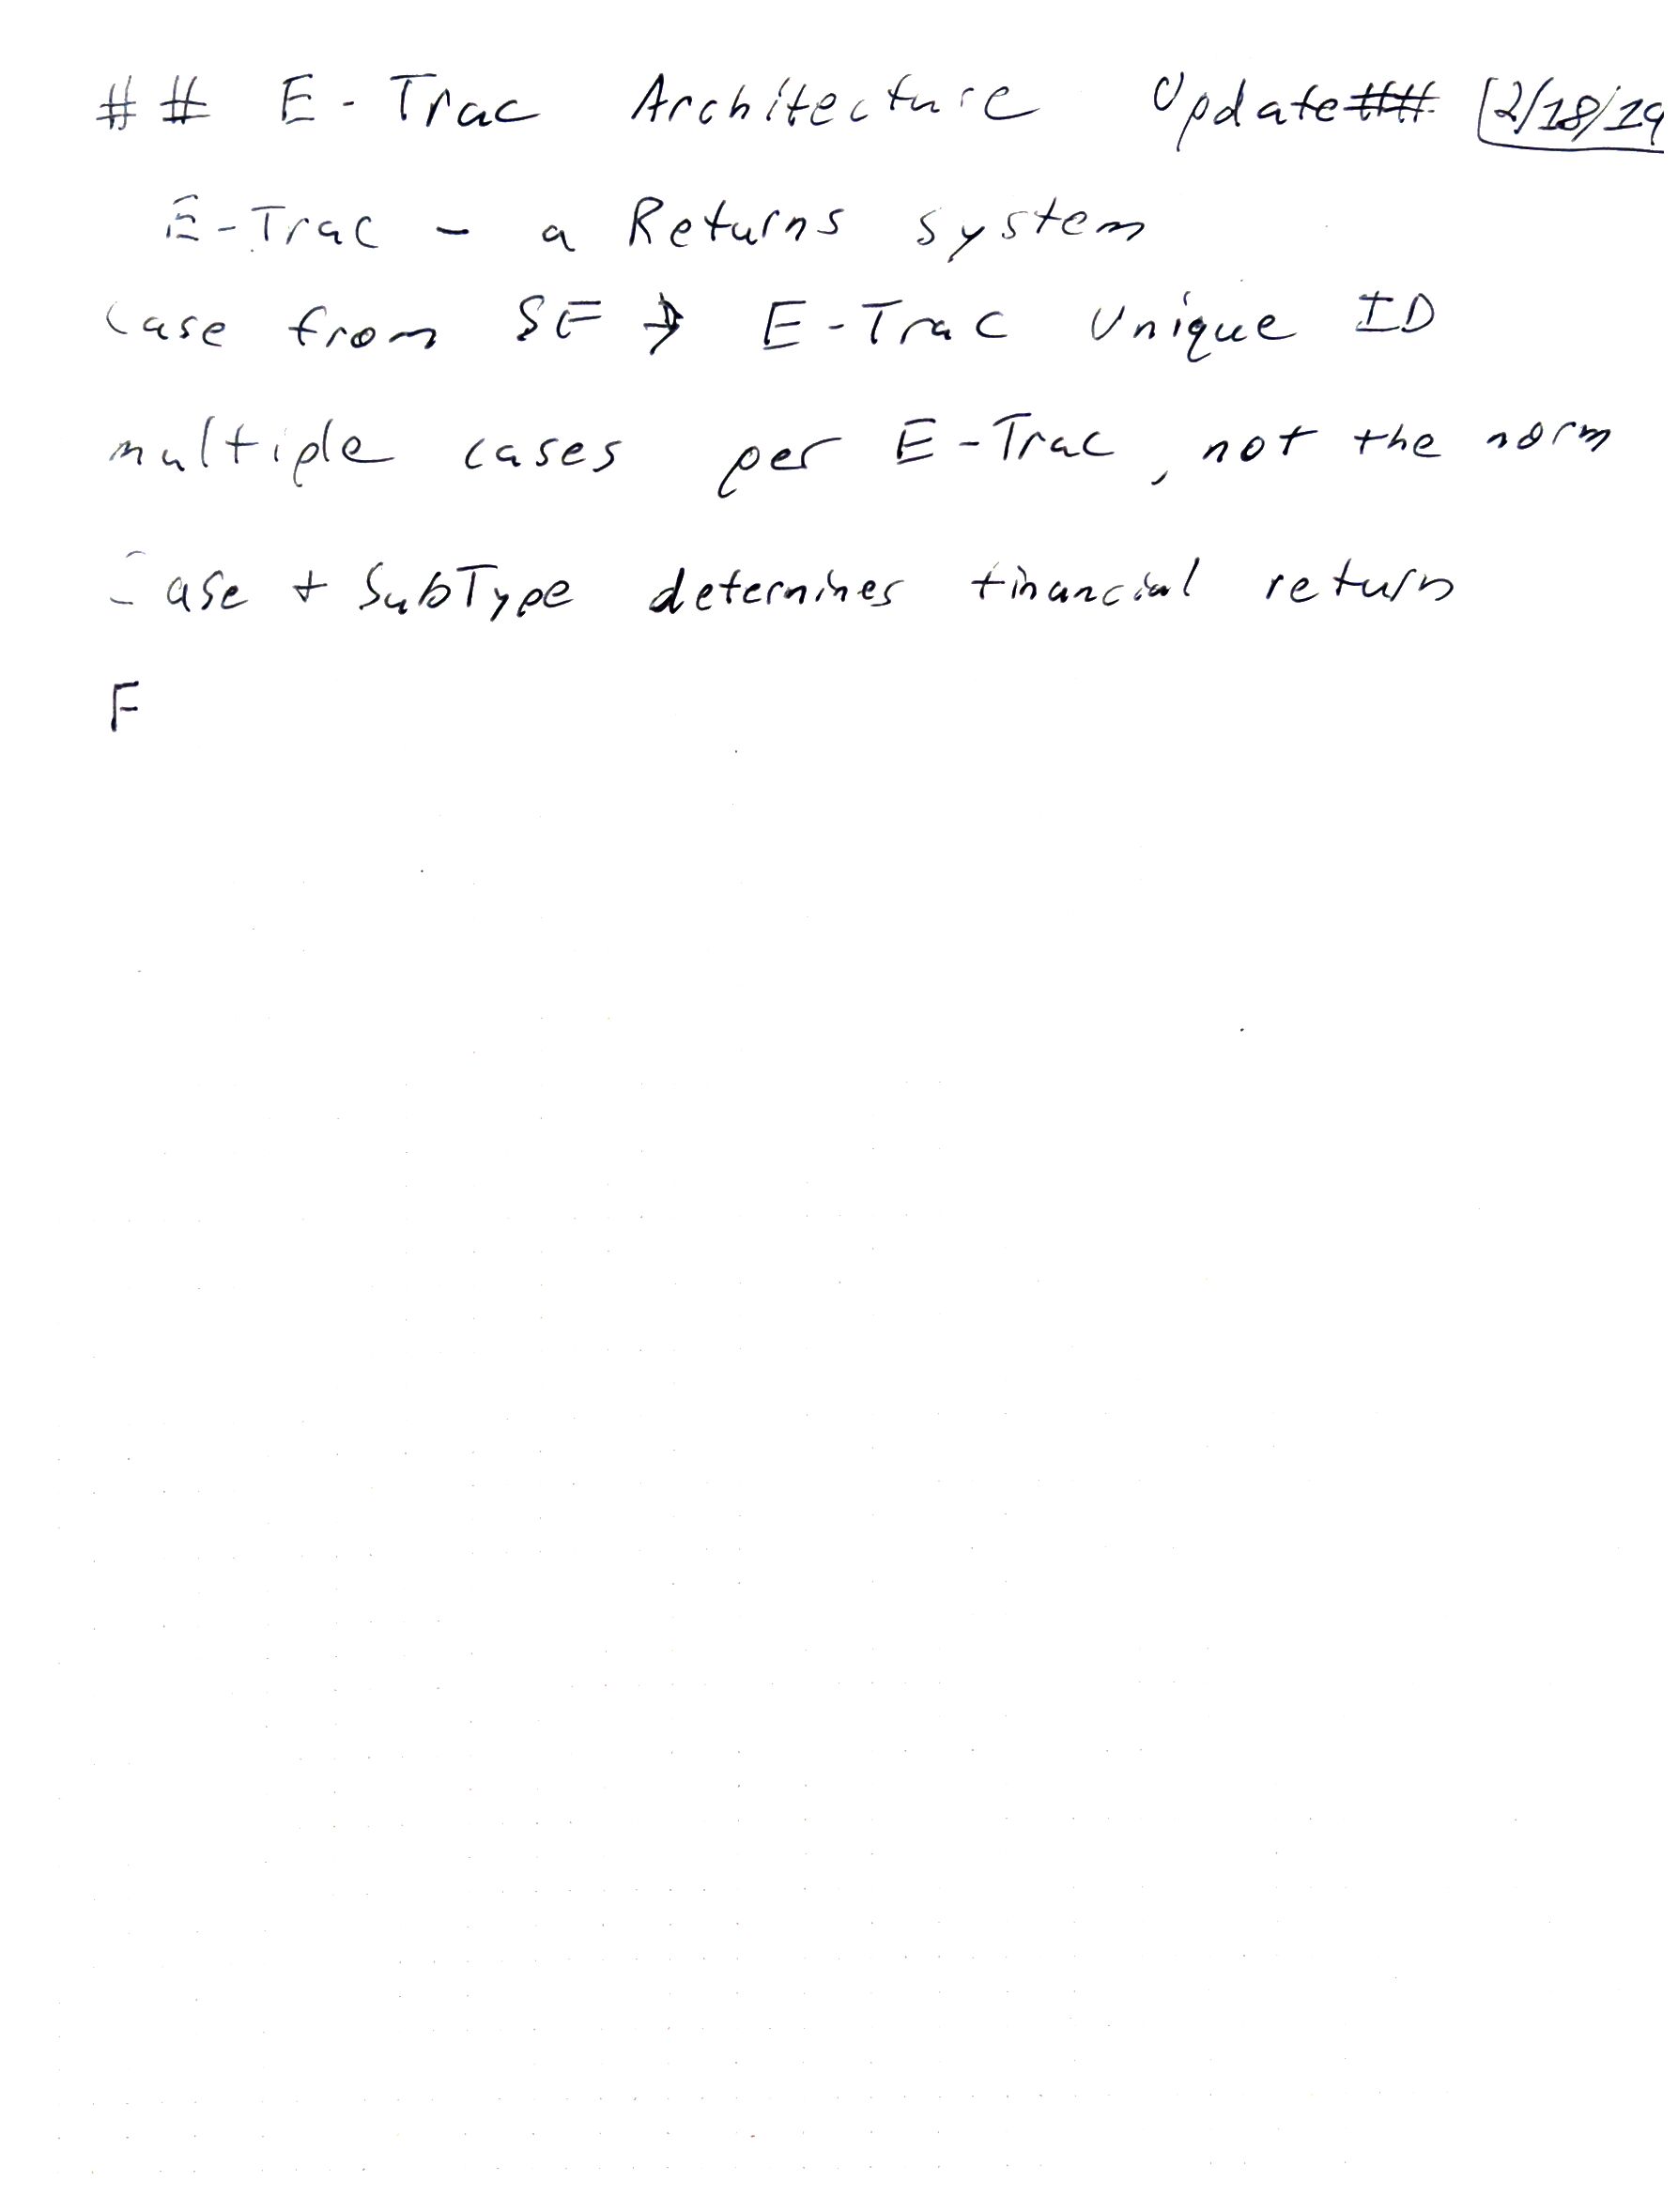 ## E-Trac Architecture Update## [2/18/19
E-Trac - a Returns system
Case from SF → E-Trac Unique ID
multiple cases per E-Trac, not the norm
Case + SubType determines financial return
F